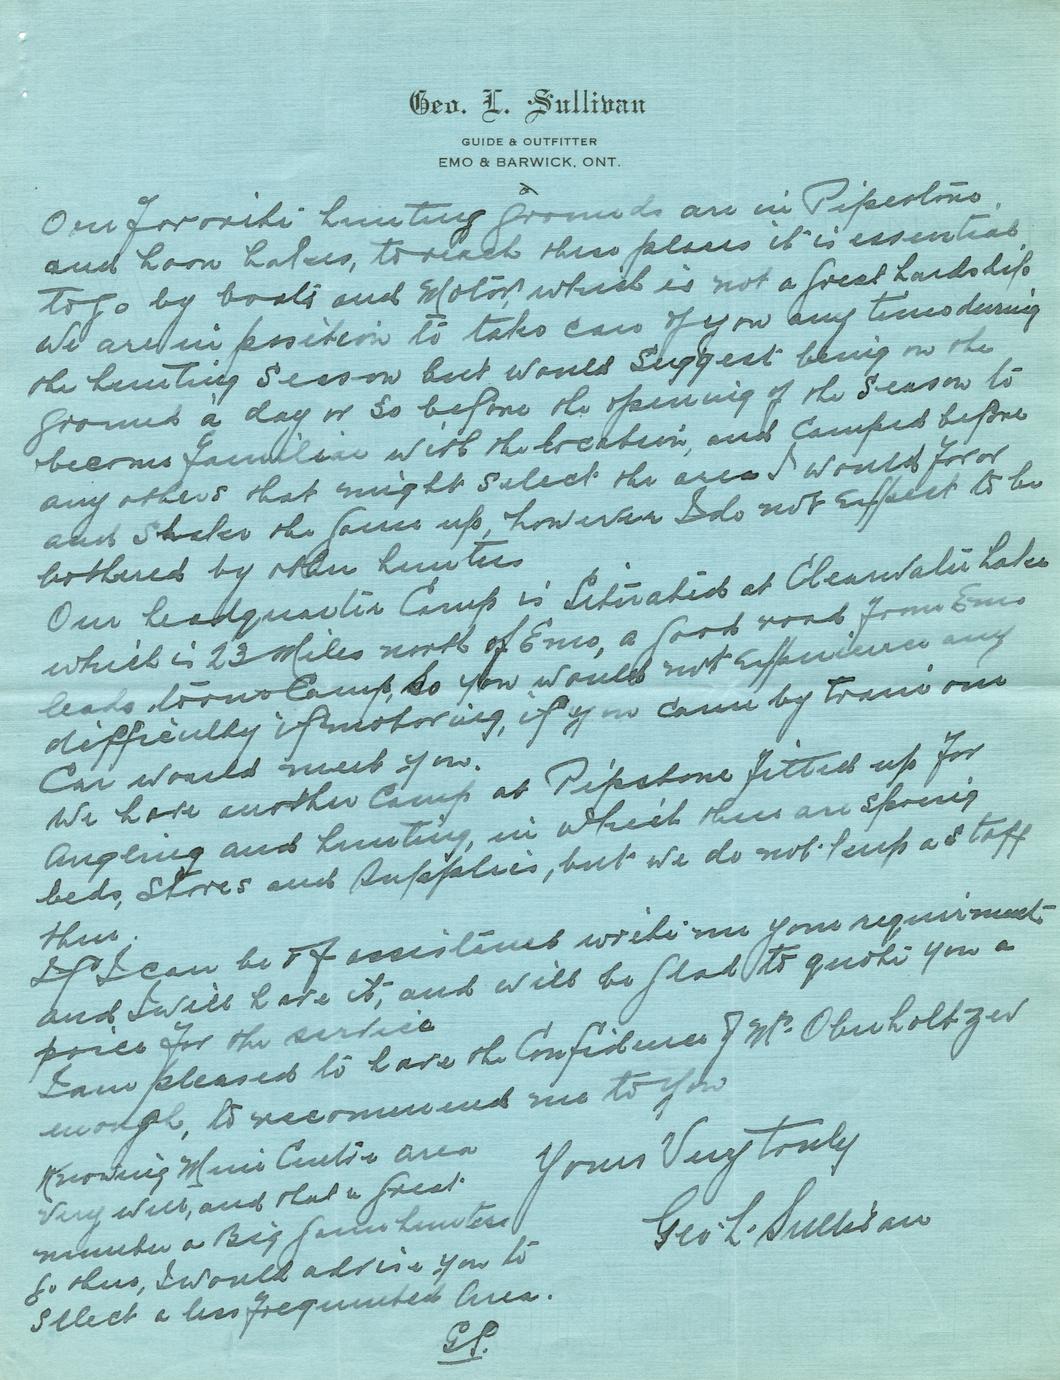 Geo. L. Sullivan
GUIDE & OUTFITTER
EMO & BARWICK, ONT.
Our Favorite hunting grounds are in Pipestone,
and Loon Lakes, to reach these places it is essential
to go by boats and Motor, which is not a great hardship
We are in position to take care of you any time during
the hunting Season but would Suggest being on the
ground a day or so before the opening of the Season to
become familiar with the location, and Camped before
any others that might Select the area I would favor
and Shake the Game up, however I do not Expect to be
bothered by other hunters
Our headquarter Camp is Situated at Clearwater Lake
which is 23 Miles north of Emo, a good road from Emo
leads to our Camp, so you would not Experience any
difficulty if motoring, if you came by train our
Car would meet you.
We have another Camp at Pipestone fitted up for
Angling and hunting, in which there are Spring
beds, Stoves and Supplies, but we do not keep a staff
there.
If I can be of assistance write me your requirements
and I will have it, and will be glad to quote you a
price for the service
I am pleased to have the Confidence of Mr. Oberholtzer
enough, to recommend me to you
Yours Very truly
Geo. L. Sullivan
Knowing Mine Centre area
Very well, and that a Great
number a Big Game hunters
Go there, I would advise you to
Select a less frequented Area.
G.S.